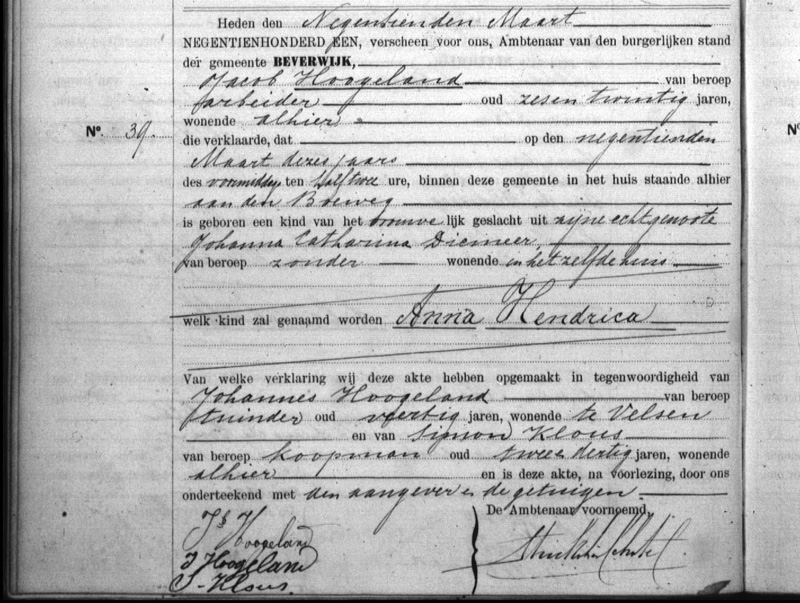 Heden den Negentienden Maart
NEGENTIENHONDERD EEN, verscheen voor ons, Ambtenaar van den burgerlijken stand
der gemeente BEVERWIJK,
Jacob Hoogeland van beroep
arbeider oud zesentwintig jaren,
wonende alhier
N°. 39.
die verklaarde, dat op den negentienden
Maart dezes jaars
des voormiddags ten half twee ure, binnen deze gemeente in het huis staande alhier
aan den
is geboren een kind van het vrouwelijk geslacht uit zijne echtgenoote
Johanna Catharina Diemeer,
van beroep zonder wonende in hetzelfde huis
welk kind zal genaamd worden Anna Hendrica
Van welke verklaring wij deze akte hebben opgemaakt in tegenwoordigheid van
Johannes Hoogeland van beroep
tuinder oud veertig jaren, wonende te Velsen
en van Simon Klous
van beroep koopman oud twee dertig jaren, wonende
alhier en is deze akte, na voorlezing, door ons
onderteekend met den aangever en de getuigen.
De Ambtenaar voornoemd,
Js Hoogeland
J Hoogeland
S. Klous.
N°